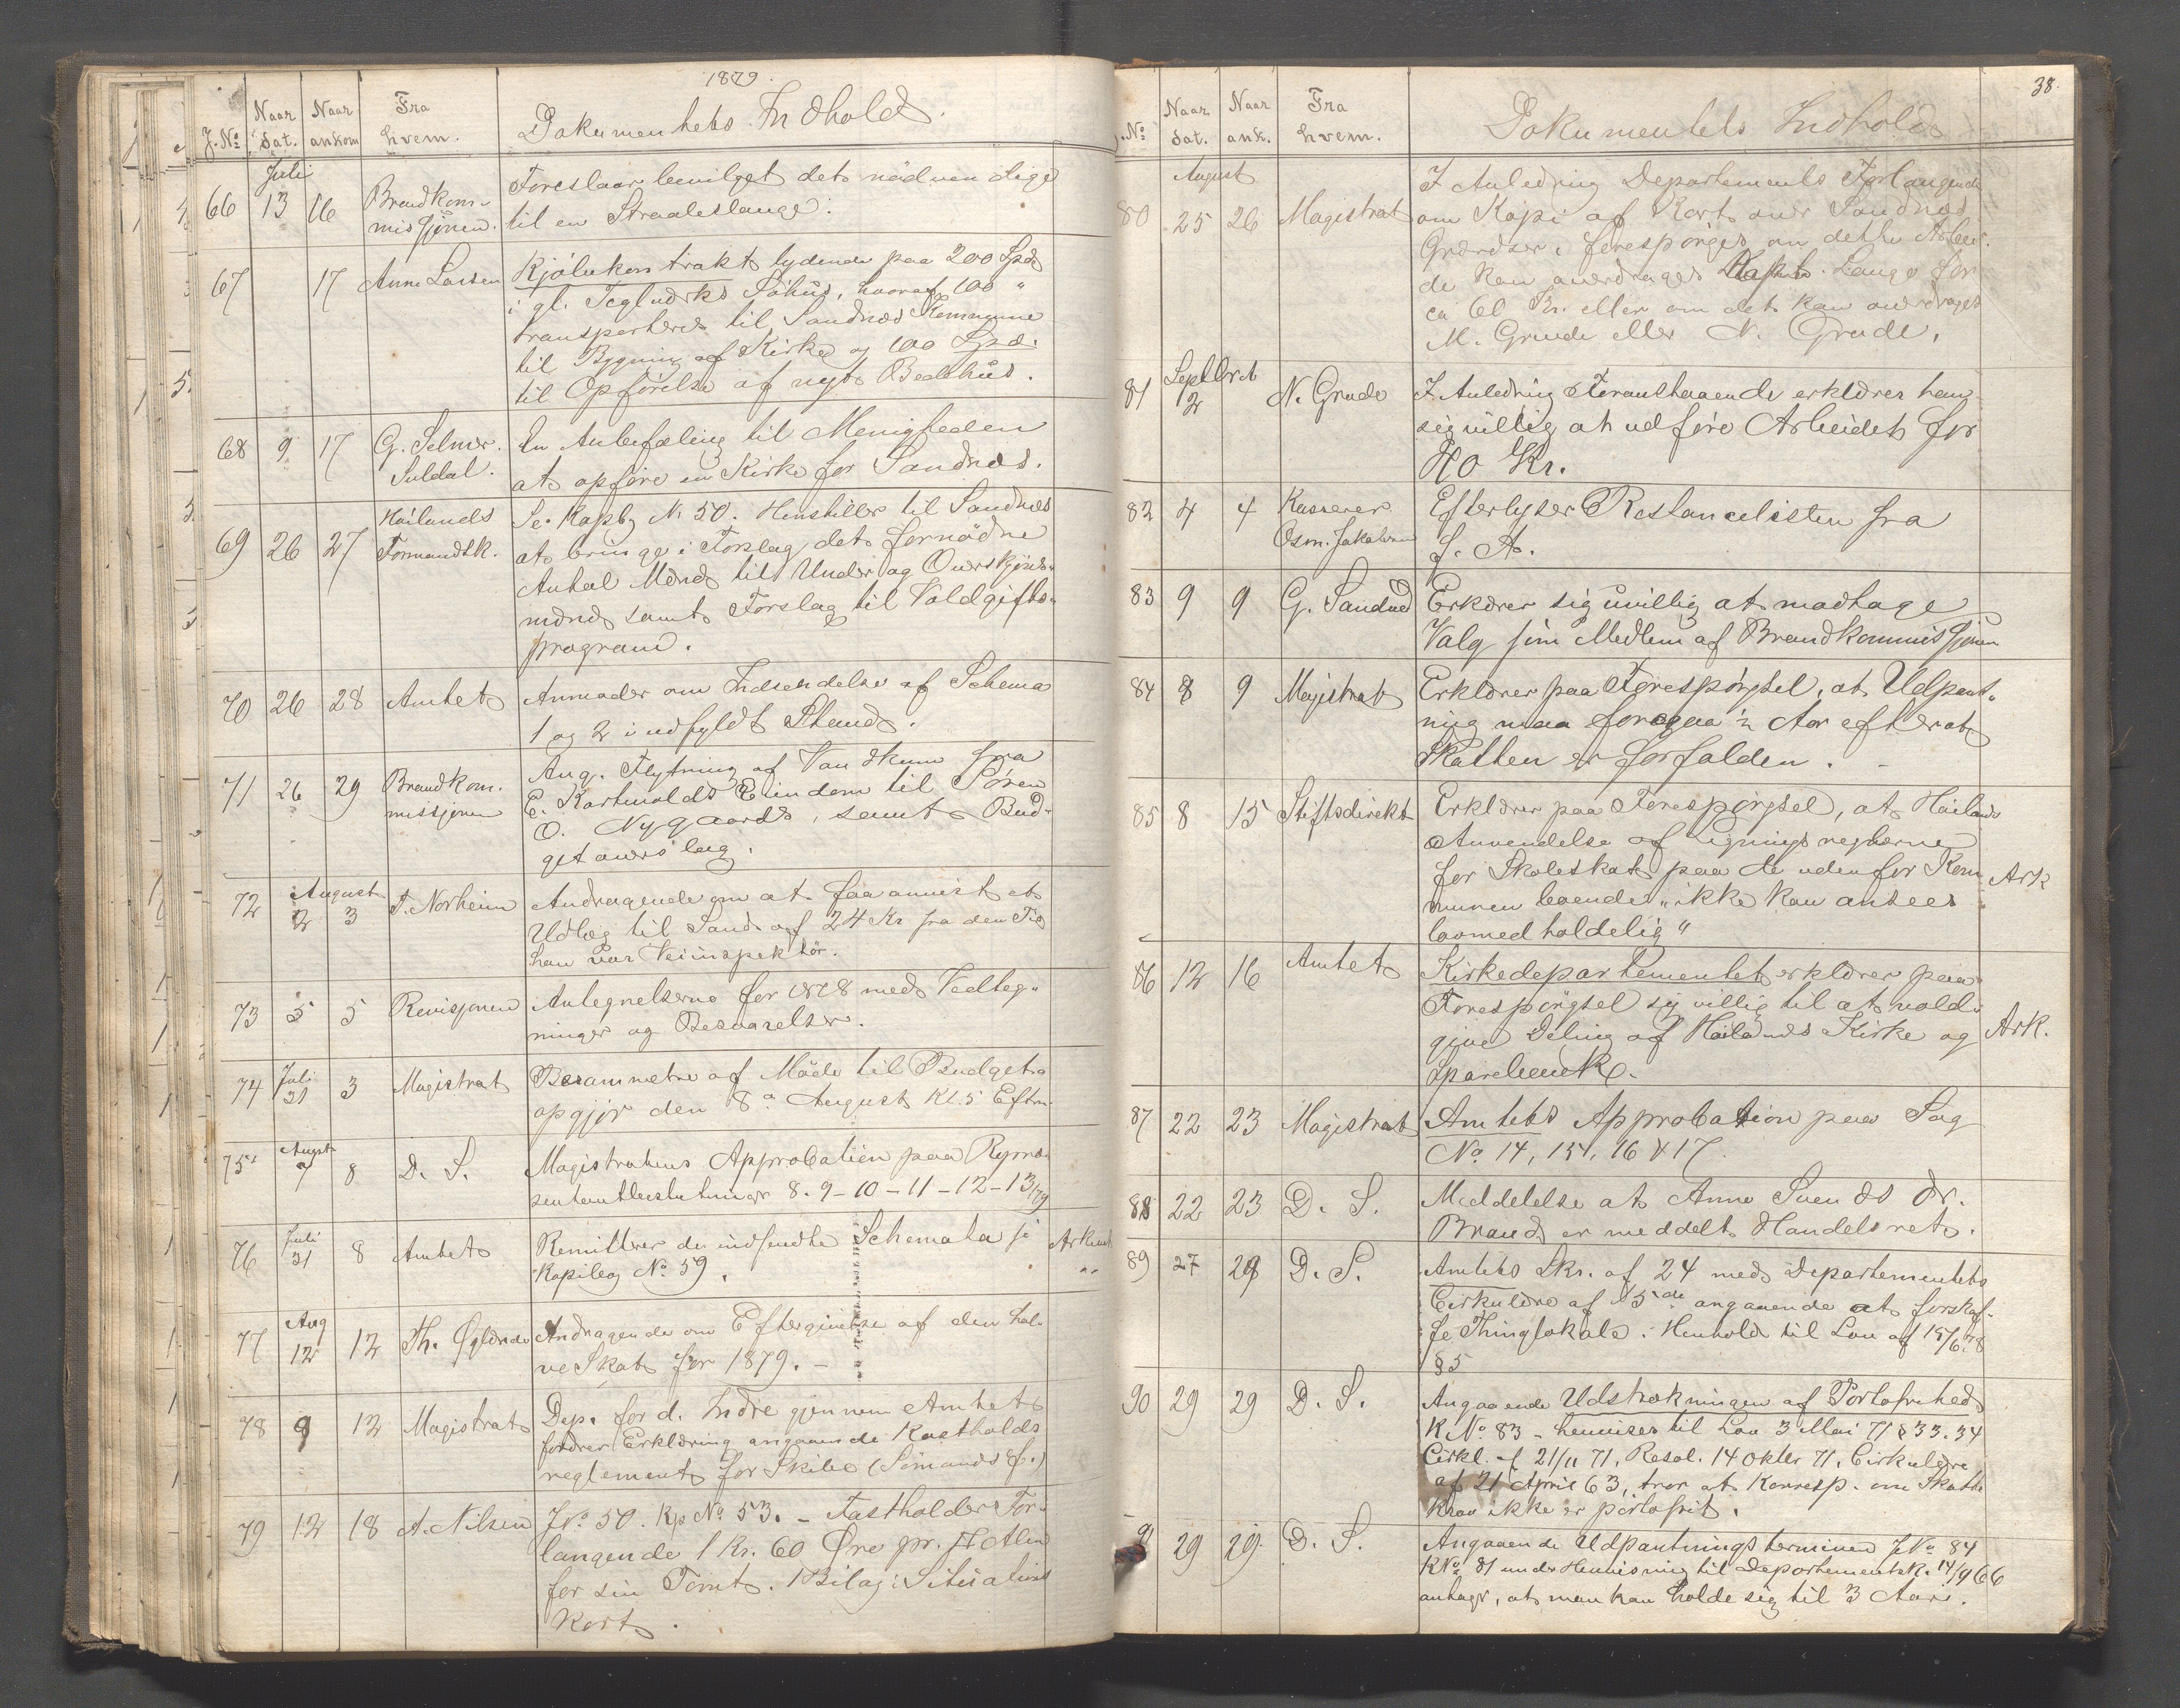 1879.
J. No Naar dat. Naar ankom Fra hvem. Dokumentets Indhold.
Juli
66 13 16 Brandkom- Foreslaar bevilget det nødvendige
missjonen. til en Straaleslange.
67 17 Anne Larsen Kjølekontrakt lydende paa 200 Spd
i gl. Teglverks Søhus, hvoraf 100 "
transporteres til Sandnæs Kommune
til Bygning af Kirke og 100 Spd.
til Opførelse af nyt Bedehus.
68 9 17 G. Selmer. En Anbefaling til Menigheden
Suldal. at opføre en Kirke for Sandnæs.
69 26 27 Høilands Se Kopbg No 50. Henstiller til Sandnæs
Formandsk. at bringe i Forslag det fornødne
Antal Mænd til Under og Overskjøns-
mænd samt Forslag til Voldgifts-
program.
70 26 28 Amtet Anmoder om Indsendelse af Schema
1 og 2 i udfyldt Stand.
71 26 29 Brandkom. Ang. Flytning af Vandkum fra
missjonen E. Kartevolds Eiendom til Søren
O. Nygaards, samt Bud-
getoverslag.
August
72 2 3 T. Norheim Andragende om at faa anvist et
Udlæg til Sand af 24 Kr fra den Tid
han var Veiinspektør.
73 5 5 Revisjonen Antegnelserne for 1878 med Vedleg-
ninger og Besvarelser.
74 Juli 31 3 Magistrat Berammelse af Møde til Budget-
opgjør den 8de August Kl. 5 Eftm.
75 Augst 7 8 D. S. Magistratens Approbation paa Repræ-
sentantbeslutninger 8-9-10-11-12-13/79
76 Juli 31 8 Amtet Remitterer de indsendte Schemata je Arkivet
Kopibog No 59.
77 Aug 12 12 Th. Øglænde Andragende om Eftergivelse af den hal-
ve Skat for 1879. -
78 9 12 Magistrat Dep. for d. Indre gjennem Amtet
fordrer Erklæring angaaende Kostholds
reglement for Skibe (Sømandsf.)
79 12 18 A. Nilsen J No 50. Kp No 53. - Fastholder For-
langende 1 Kr. 60 Øre pr. □ Alen
for sin Tomt. 1 Bilag: Situations
Kort.
38.
J. No Naar dat. Naar ank. Fra hvem. Dokumentets Indhold
August
80 25 26 Magistrat I Anledning Departements Forlangende
om Kopi af Kort over Sandnæs
Grændser, forespørges om dette Arbei-
de kan overdrages Kapt. Lange for
ca 60 Kr. eller om det kan overdrages
M. Grude eller N. Grude.
Septbr
81 2 N. Grude I Anledning Foranstaaende erklærer han
sig villig at udføre Arbeidet for
40 Kr.
82 4 4 Kasserer Efterlyser Restancelisten fra
Osm. Jakobsen f. A.
83 9 9 G. Sandved Erklærer sig uvillig at modtage
Valg som Medlem af Brandkommissjonen
84 8 9 Magistrat Erklærer paa Forespørgsel, at Udpant-
ning maa foregaa ½ Aar efter at
Skatten er forfalden. -
85 8 15 Stiftsdirekt Erklærer paa Forespørgsel, at Høilands
Anvendelse af Ligningsreglerne
for Skoleskat paa de udenfor Kom- Ark
munen boende "ikke kan ansees
lovmedholdelig"
86 12 16 Amtet Kirkedepartementet erklærer paa
Forespørgsel sig villig til at vold-
give Deling af Høilands Kirke og Ark.
Sparebank.
87 22 23 Magistrat Amtets Approbation paa Sag
No. 14, 15, 16 & 17.
88 22 23 D. S. Meddelelse at Anne Svends dr.
Brand er meddelt Handelsret.
89 27 28 D. S. Amtets Skr. af 24 med Departementets
Cirkulære af 15de angaaende at forskaf-
fe Thinglokale i Henhold til Lov af 15/6 78
§ 5
90 29 29 D. S. Angaaende Udstrækningen af Portofrihed
K No 83 - henvises til Lov 3 Mai 71 § 33. 34
Cirkl. af 21/11 71, Resol. 14 Oktbr 71, Cirkulære
af 21 April 63, tror at Korresp. om Skatte
krav ikke er portofrit.
91 29 29. D. S. Angaaende Udpantningsterminen J No 84
K No 81 under Henvisning til Departementsk. 14/9 66
antager, at man kan holde sig til 3 Aar.